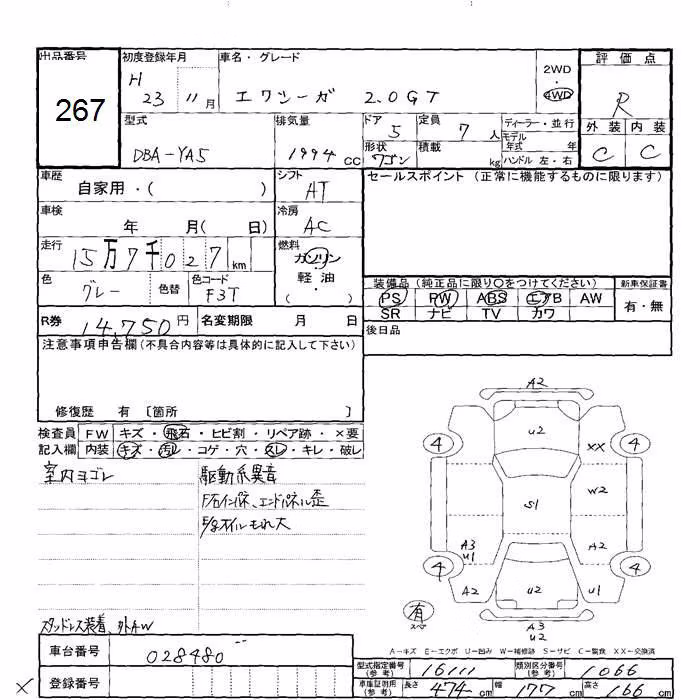 出品番号 267
初度登録年月 H 23 11月
車名・グレード エクシーガ 2.0GT
2WD ・ 4WD
評価点 R
外装 C 内装 C
型式 DBA-YA5
排気量 1994 cc
ドア 5
定員 7 人
形状 ワゴン
積載 kg
ディーラー・並行
モデル年式 年
ハンドル 左・右
車歴 自家用・( )
シフト AT
セールスポイント (正常に機能するものに限ります)
車検 年 月( 日)
冷房 AC
走行 15万7千027km
燃料 ガソリン 軽・油 ・( )
色 グレー 色替
色コード F3T
装備品 (純正品に限り○をつけてください)
PS PW ABS エアB AW
SR ナビ TV カワ
新車保証書 有・無
R券 14,750円
名変期限 月 日
後日品
注意事項申告欄(不具合内容等は具体的に記入して下さい)
修復歴 有 [箇所 ]
検査員 FW キズ・飛石・ヒビ割・リペア跡・×要
記入欄 内装 キズ・汚レ・コゲ・穴・スレ・キレ・破レ
室内ヨゴレ
駆動系異音
F/右インパネ、エンドパネル歪
E/gオイルもれ大
スタッドレス装着、外AW
A2
U2
XX
4 4
W2
S1
A3 U1
A2
4 4
A2 U2 U1
有 スペア
A3 U2
A-キズ E-エクボ U-凹み W-補修跡 S-サビ C-腐食 XX-交換済
車台番号 028480
登録番号
型式指定番号(参考) 16111
類別区分番号(参考) 1066
車庫証明用(参考) 長さ 474 cm 幅 177 cm 高さ 166 cm
×